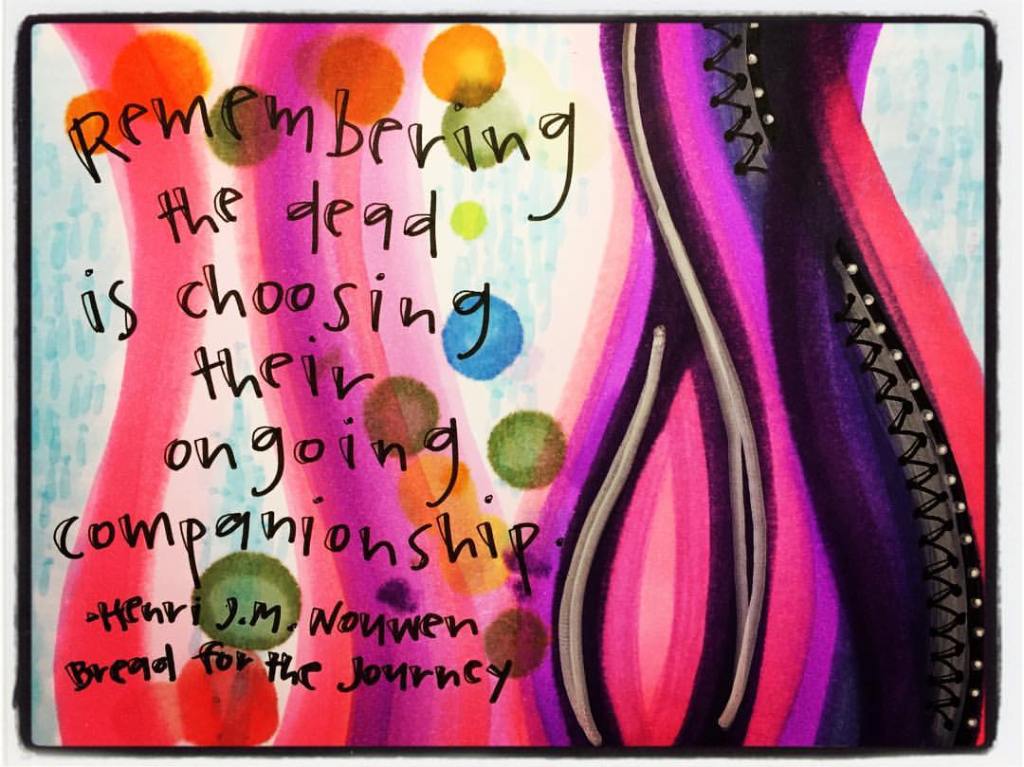 Remembering
the dead
is choosing
their
ongoing
companionship.
-Henri J.M. Nouwen
Bread for the Journey